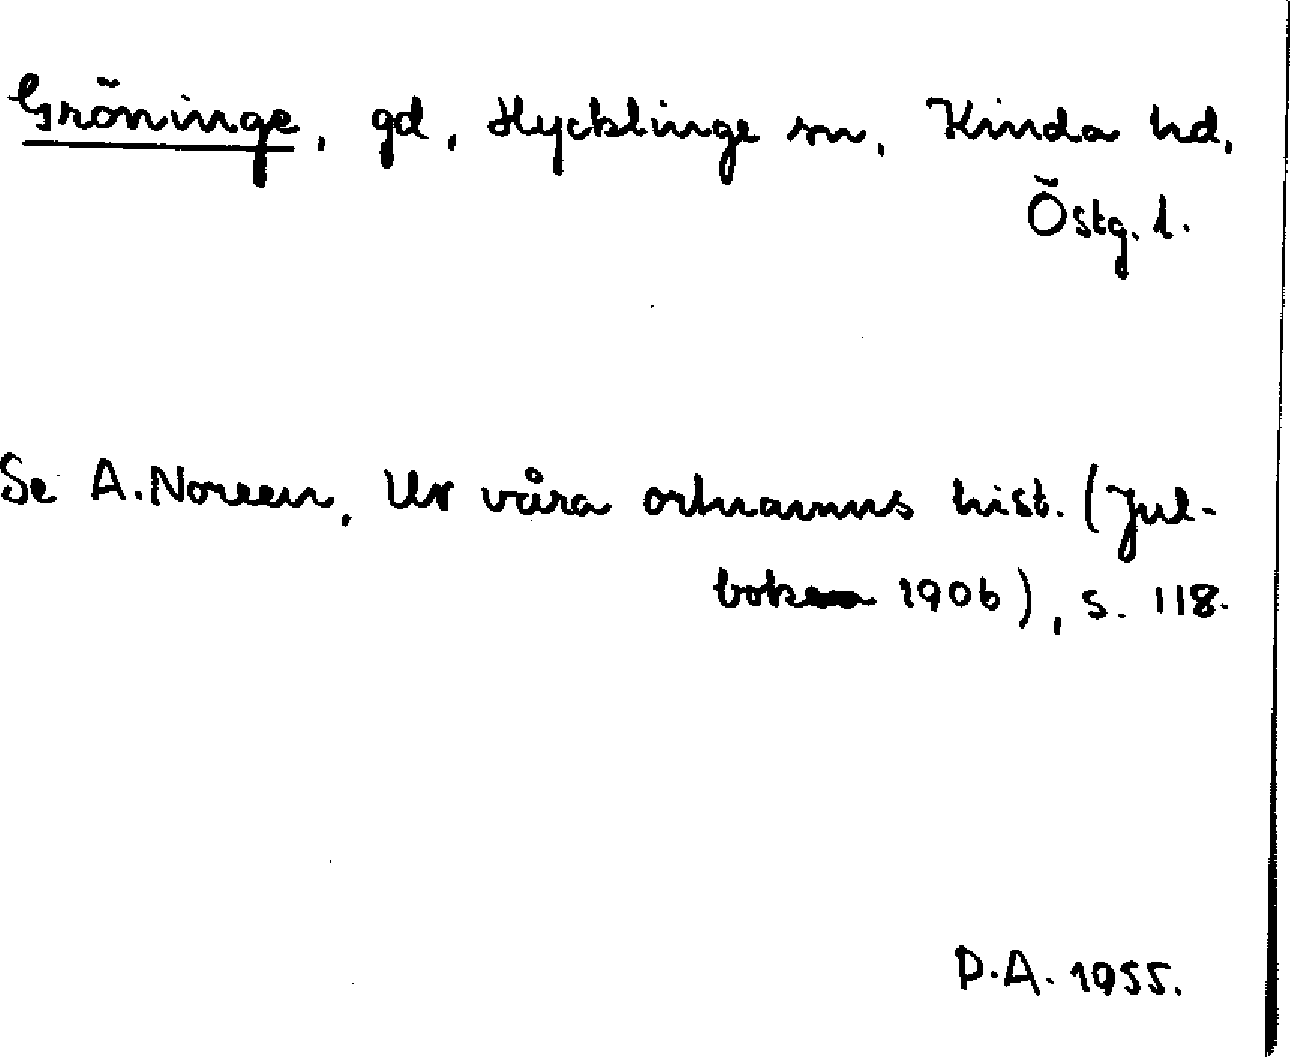 Gröninge, gd, Hycklinge sn, Kinda hd,
Östg. l.
Se A. Noreen, Ur våra ortnamns hist. (Jul-
boken 1906), s. 118.
D.A. 1955.